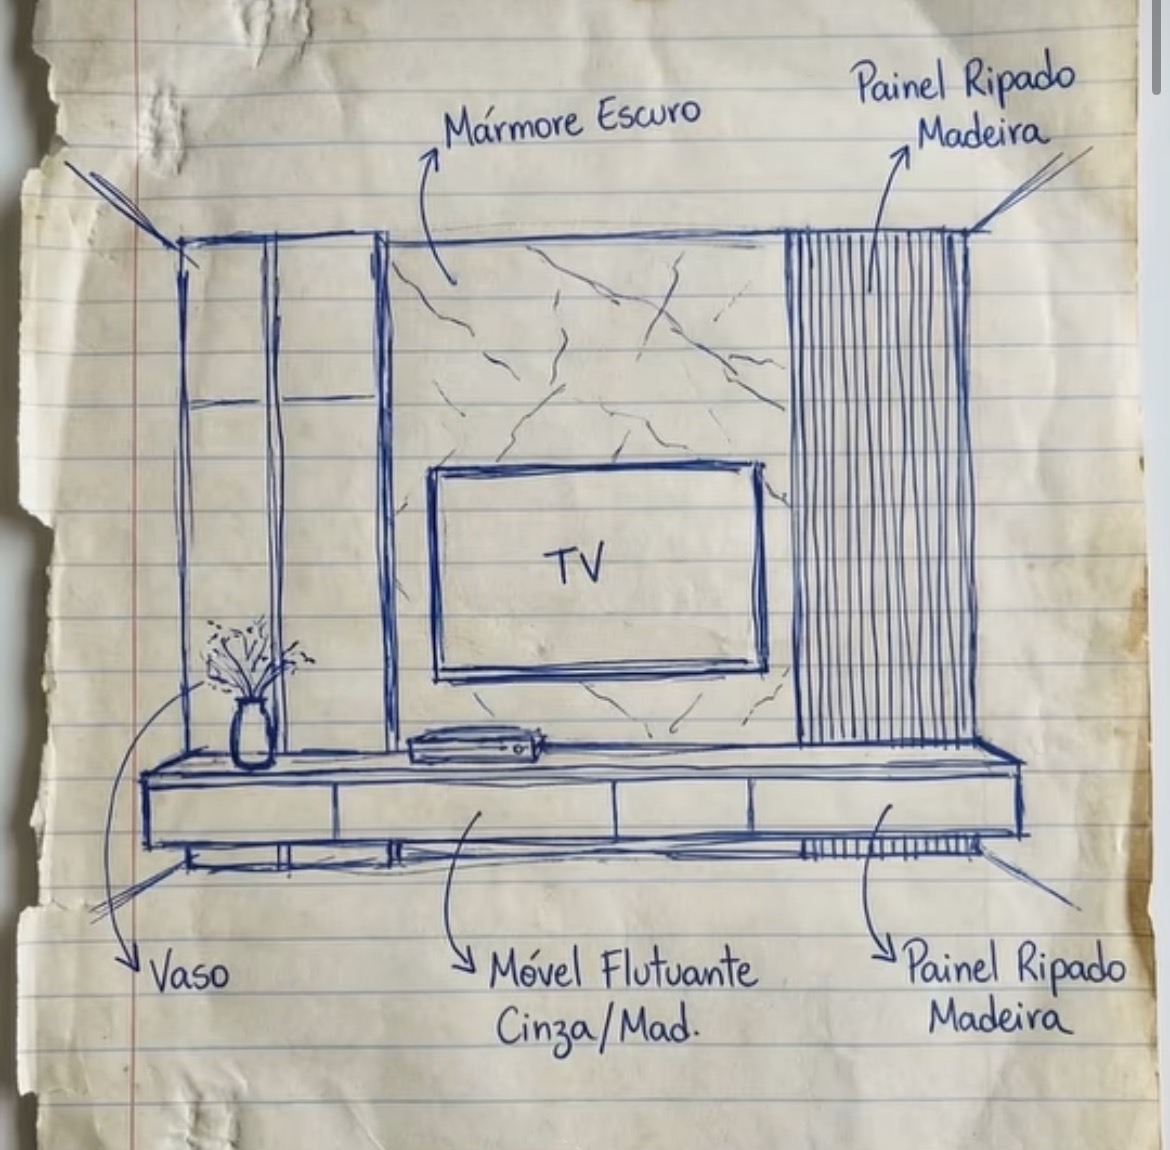 Painel Ripado
Madeira
Mármore Escuro
TV
Vaso
Móvel Flutuante
Cinza/Mad.
Painel Ripado
Madeira